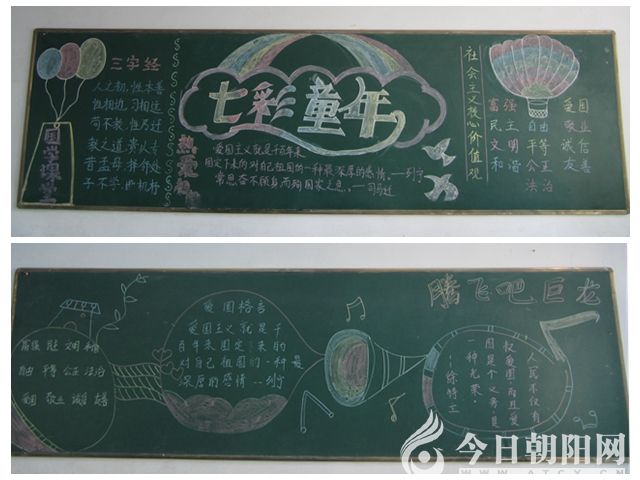 三字经
人之初，性本善
性相近，习相远
苟不教，性乃迁
教之道，贵以专
昔孟母，择邻处
子不学，断机杼
国学课堂
热爱祖
七彩童年
爱国主义就是千百年来
固定下来的对自己祖国的一种最深厚的感情。---列宁
常思奋不顾身，而殉国家之急。---司马迁
社会主义核心价值观
富强 爱国
民主 自由 敬业
文明 平等 诚信
和谐 公正 友善
法治
腾飞吧巨龙
富强 民主 文明 和谐
自由 平等 公正 法治
爱国 敬业 诚信 友善
爱国格言
爱国主义就是千
百年来固定下来的
对自己祖国的一种最
深厚的感情---列宁
人民不仅有
权爱国，而且爱
国是个义务，是
一种光荣。
---徐特立
今日朝阳网